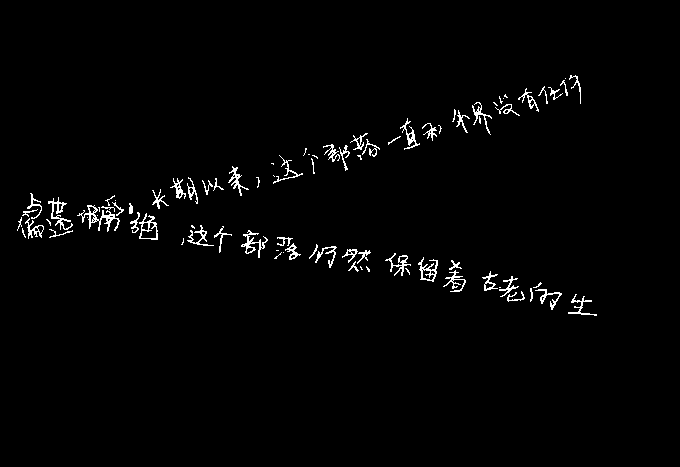 长期以来，这个部落一直和外界没有任何
，这个部落仍然保留着古老的生